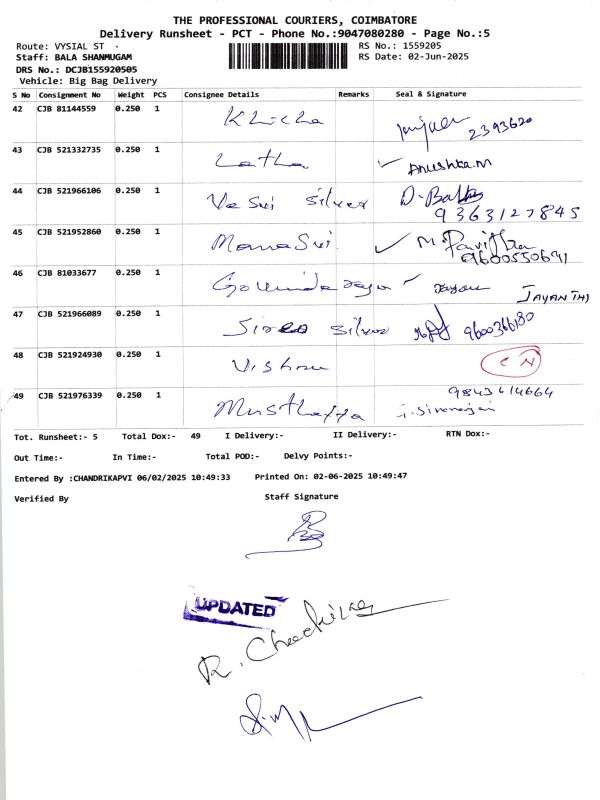 THE PROFESSIONAL COURIERS, COIMBATORE
Delivery Runsheet - PCT - Phone No.:9047080280 - Page No.:5
Route: VYSIAL ST
RS No.: 1559205
Staff: BALA SHANMUGAM
RS Date: 02-Jun-2025
DRS No.: DCJB155920505
Vehicle: Big Bag Delivery
S No Consignment No Weight PCS Consignee Details Remarks Seal & Signature
42 CJB 81144559 0.250 1 Khicha 2393620
43 CJB 521332735 0.250 1 Latha Anushka.M
44 CJB 521966106 0.250 1 Vasui Silver D. Bala
9363127845
45 CJB 521952860 0.250 1 ManaSui. M. Pavithra
9600550691
46 CJB 81033677 0.250 1 Govindaraju JAYANTHI
47 CJB 521966089 0.250 1 Silver 9600366180
48 CJB 521924930 0.250 1 Vishnu
49 CJB 521976339 0.250 1 Musthaffa 9843614664
Tot. Runsheet:- 5 Total Dox:- 49 I Delivery:- II Delivery:- RTN Dox:-
Out Time:- In Time:- Total POD:- Delvy Points:-
Entered By :CHANDRIKAPVI 06/02/2025 10:49:33 Printed On: 02-06-2025 10:49:47
Verified By Staff Signature
UPDATED